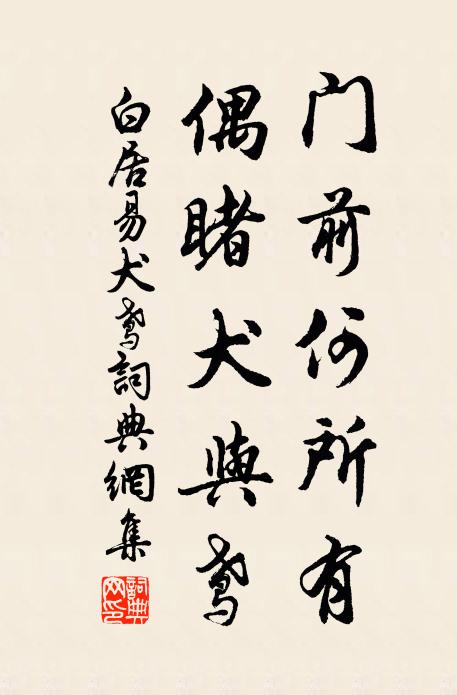 门前何所有
偶睹犬與鸢
白居易犬鸢詞典網集
詞典网印